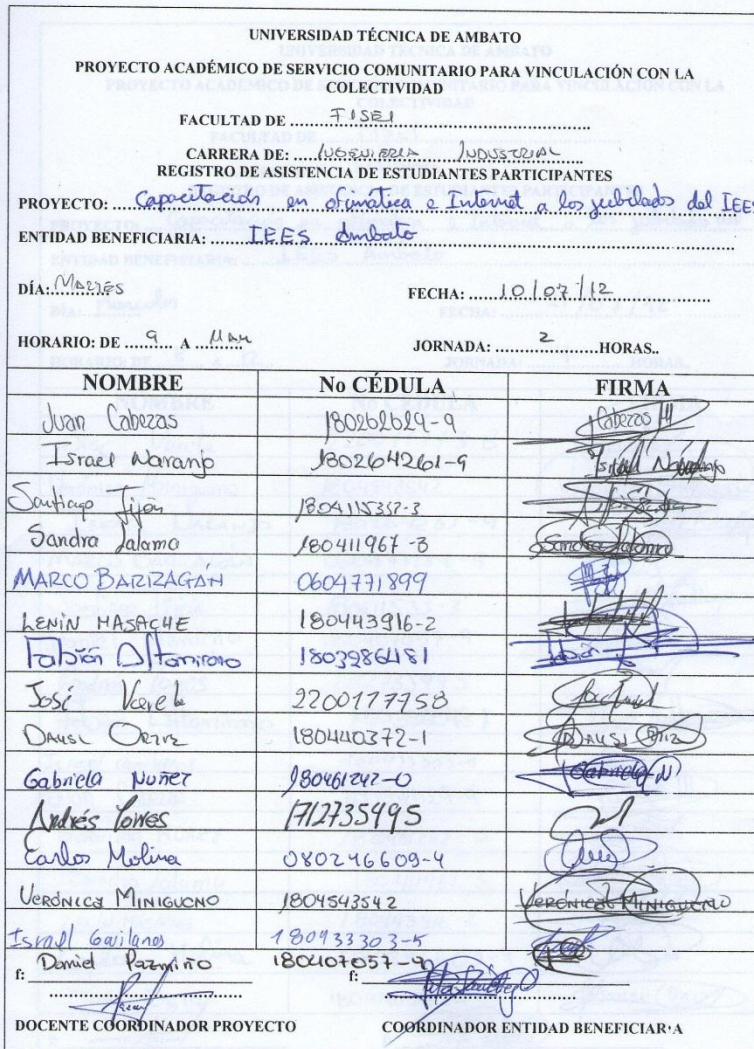 UNIVERSIDAD TÉCNICA DE AMBATO
PROYECTO ACADÉMICO DE SERVICIO COMUNITARIO PARA VINCULACIÓN CON LA
COLECTIVIDAD
FACULTAD DE ... FISEI
CARRERA DE: ... INGENIERIA INDUSTRIAL
REGISTRO DE ASISTENCIA DE ESTUDIANTES PARTICIPANTES
PROYECTO: ... Capacitación en ofimatica e Internet a los jubilados del IEES
ENTIDAD BENEFICIARIA: ... IEES Ambato
DÍA: MARTES FECHA: 10/07/12
HORARIO: DE ... 9 ... A ... 11 am JORNADA: ... 2 ... HORAS..
NOMBRE No CÉDULA FIRMA
Juan Cabezas 180262624-9 Cabezas
Israel Naranjo 180264261-9 Israel Naranjo
Santiago Tijón
Sandra Jalama 180411967-3 Sandra Jalama
MARCO BARIZAGAN 0604771899
LENIN MASACHE 180443916-2
Fabián Altamirano 1803286481 Fabián
José Varela
DANSI ORTIZ 180440372-1 DANSI ORTIZ
Gabriela Nuñez 180461242-0 Gabriela N
Andrés Torres 1712735495
Carlos Molina 080246609-4
VERÓNICA MINIGUCNO 1804543542 VERÓNICA MINIGUCNO
Israel Gavilanes 180933303-5
Daniel Pazmiño 180407057-9
f: f:
DOCENTE COORDINADOR PROYECTO COORDINADOR ENTIDAD BENEFICIARIA